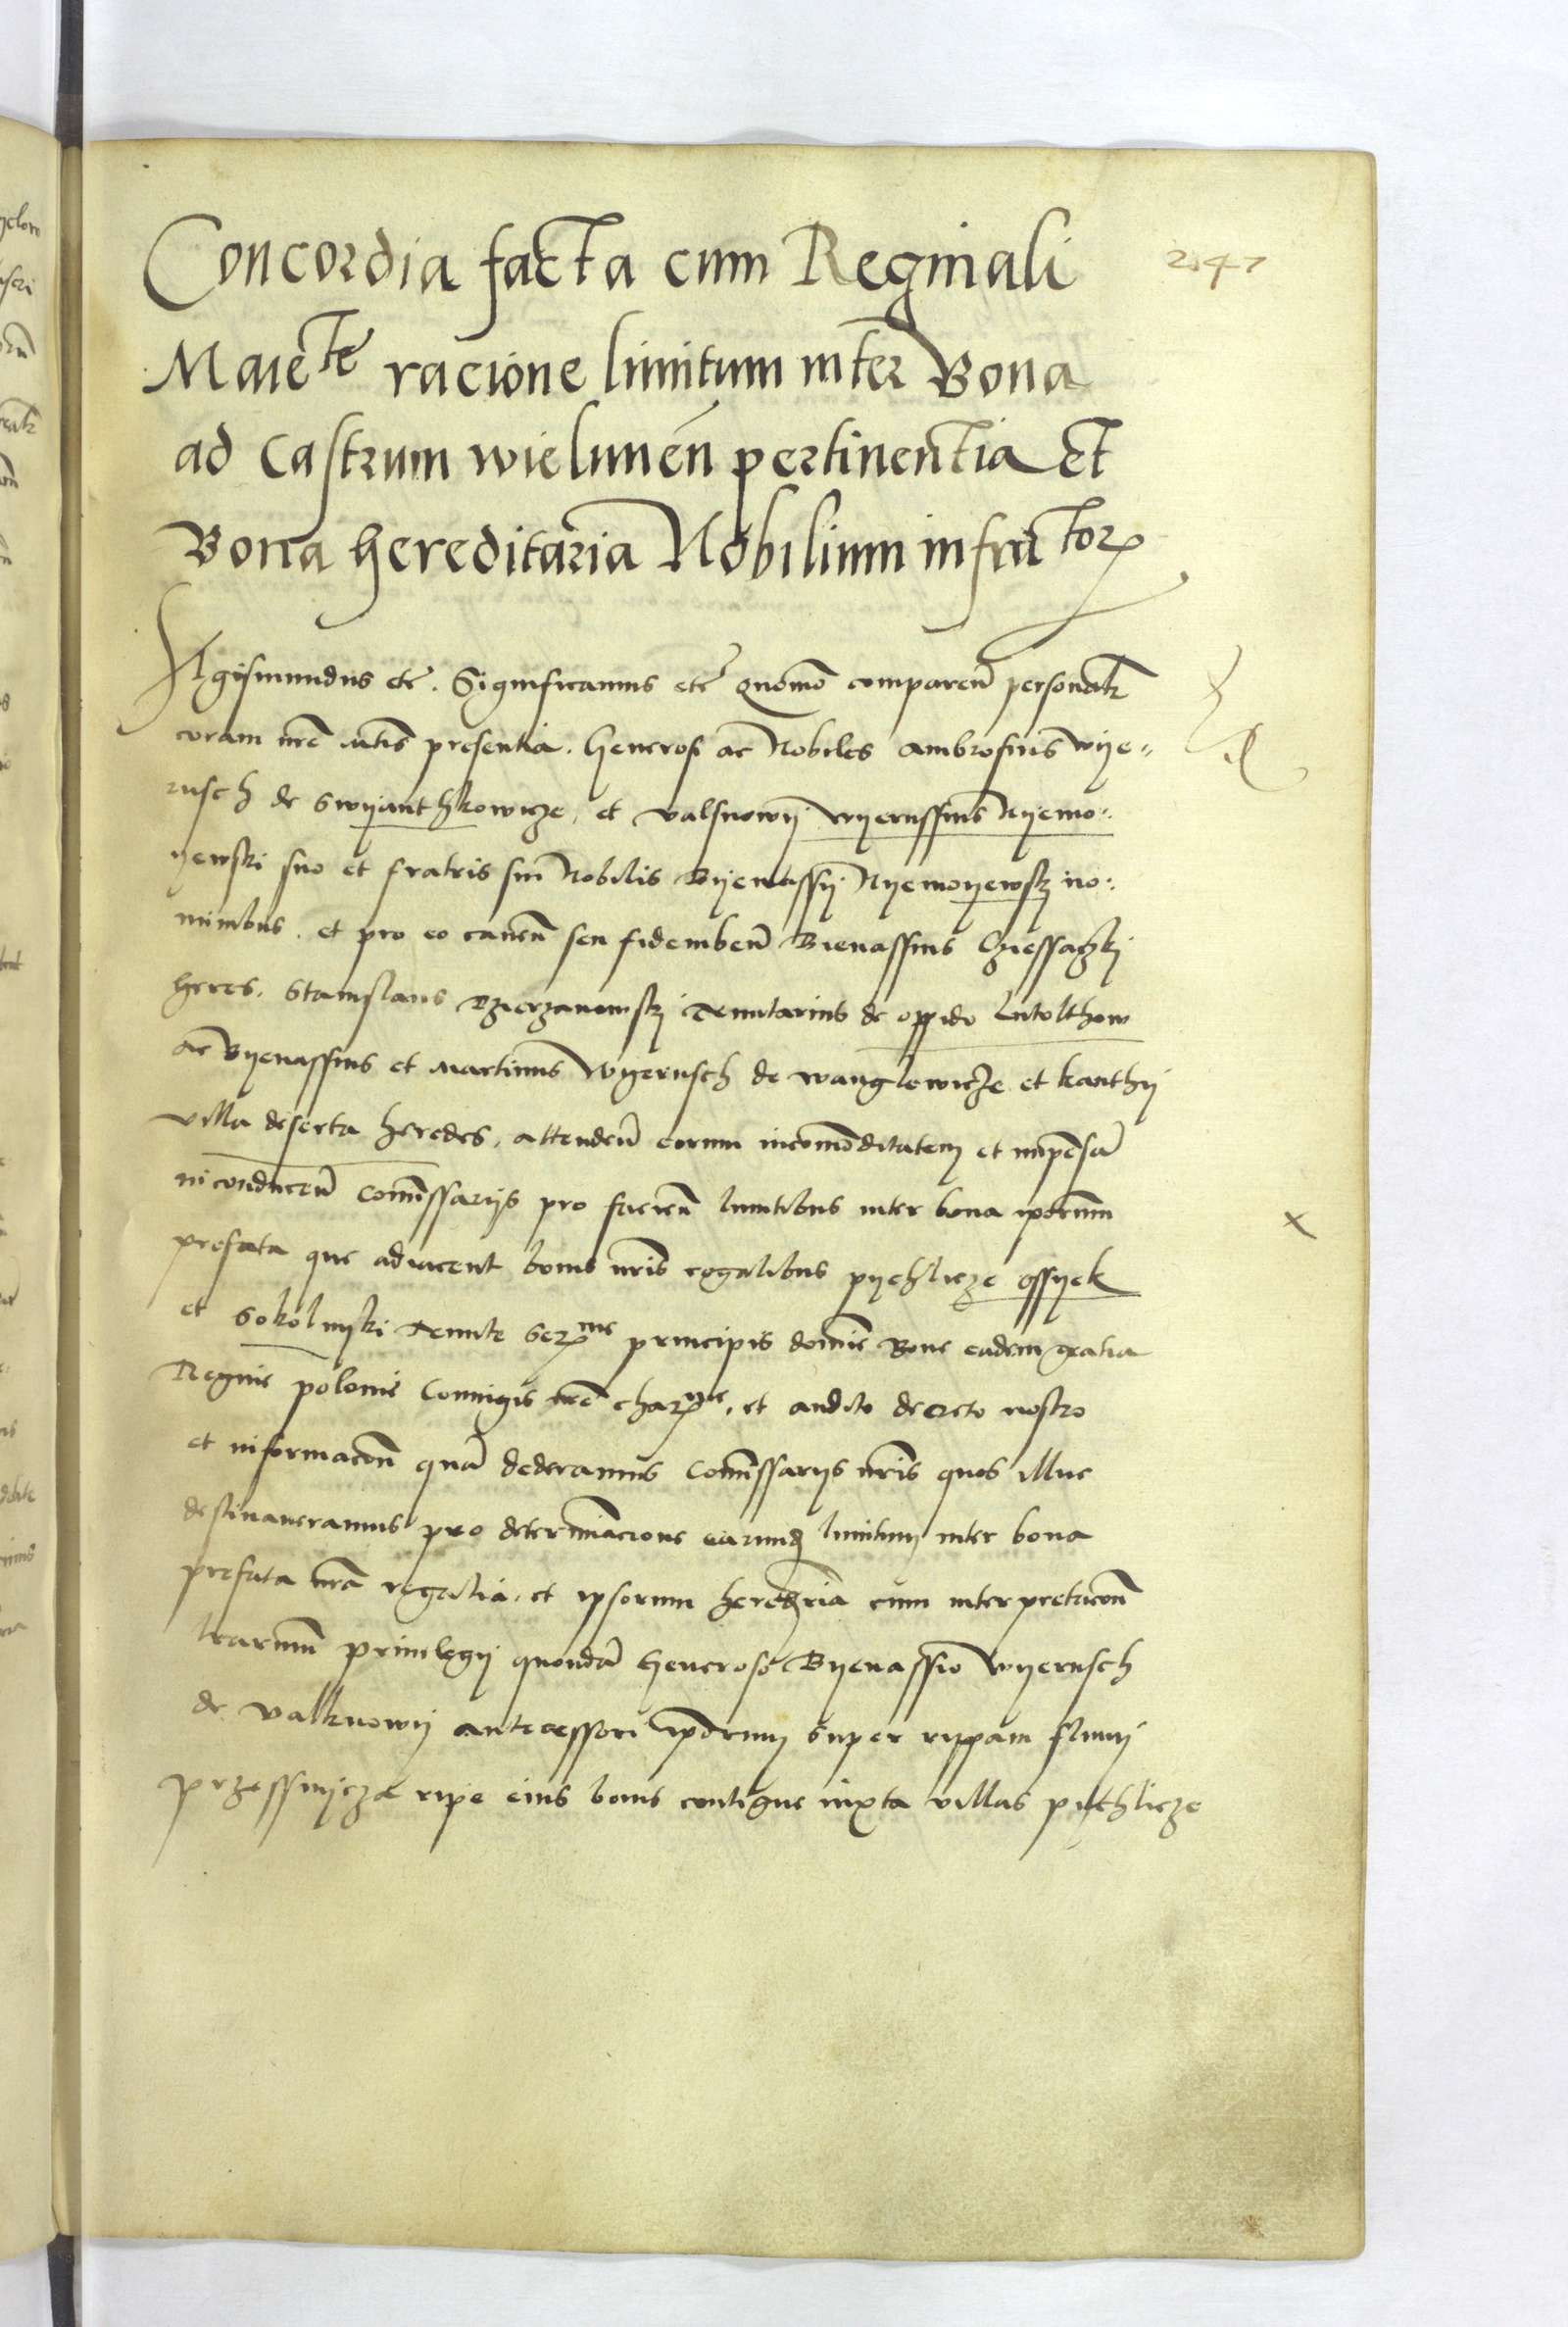 247
Concordia facta cum Reginali
Maiete racione limitum inter Bona
ad Castrum wielunen̄ pertinentia Et
Bona hereditaria Nobilium infra torꝝ
Sigismundus etc̄. Significamus etc̄ Quomō comparen̄ personalr̄
coram nr̄e Mtis presentia. Generosi ac Nobiles Ambrosius wije„
rusch de Swijanthkowicze, et valsnowij wyerussius Nyemo:.
yewski suo et fratris sui Nobilis Byenassij Nyemoyewskj no:.
minibus. et pro eo caven̄ seu fideiuben̄ Bienassius
heres. Stanislaus Dzierzanowskj Tenutarius de oppido Lutolthow
ac Byenassius et Martinus Wyerusch de wanglewicze et kanthij
villa deserta heredes. attenden̄ eorum incomōditatem et impēsā
in conducen̄ Comīssarijs pro facien̄ limitibus inter bona ipōrum
prefata que adiacent bonis nr̄is regalibus pyehlicze ossyek
et Sokolnyki Tenute Serꝝme principis domīe Bone eadem gratia
Regine polonie Coniugis nr̄e charꝝme, et audito decreto nostro
et informacōn quā dederamus Comīssarijs nr̄is quos illuc
destinaveramus pro determīacione earundꝫ limitum inter bona
prefata nr̄a regalia. et ipsorum heredr̄ia cum interpretacōn
lr̄arum privilegij quondā Generoso Byenassio Wyerusch
de valknowij antecessori ipōrum super rippam fluvij
przessnycza ripe eius bonis contigue iuxta villas pychlicze